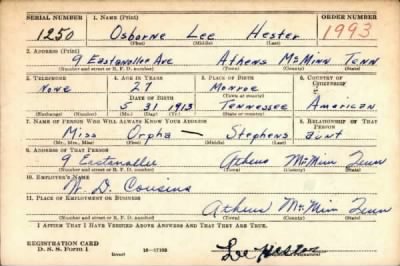 SERIAL NUMBER 1. NAME (Print) ORDER NUMBER
1250 Osborne Lee Hester 1993
(First) (Middle) (Last)
2. ADDRESS (Print)
9 Eastanallee Ave Athens McMinn Tenn
(Number and street or R. F. D. number) (Town) (County) (State)
3. TELEPHONE 4. AGE IN YEARS 5. PLACE OF BIRTH 6. COUNTRY OF CITIZENSHIP
None 27 Monroe
DATE OF BIRTH (Town or county)
5 31 1913 Tennessee American
(Exchange) (Number) (Mo.) (Day) (Yr.) (State or country)
7. NAME OF PERSON WHO WILL ALWAYS KNOW YOUR ADDRESS 8. RELATIONSHIP OF THAT PERSON
Miss Orpha — Stephens Aunt
(Mr., Mrs., Miss) (First) (Middle) (Last)
9. ADDRESS OF THAT PERSON
9 Eastanallee Athens McMinn Tenn
(Number and street or R. F. D. number) (Town) (County) (State)
10. EMPLOYER'S NAME
W. D. Cousins
11. PLACE OF EMPLOYMENT OR BUSINESS
Athens McMinn Tenn
(Number and street or R. F. D. number) (Town) (County) (State)
I AFFIRM THAT I HAVE VERIFIED ABOVE ANSWERS AND THAT THEY ARE TRUE.
REGISTRATION CARD
D. S. S. Form 1 (over) Lee Hester